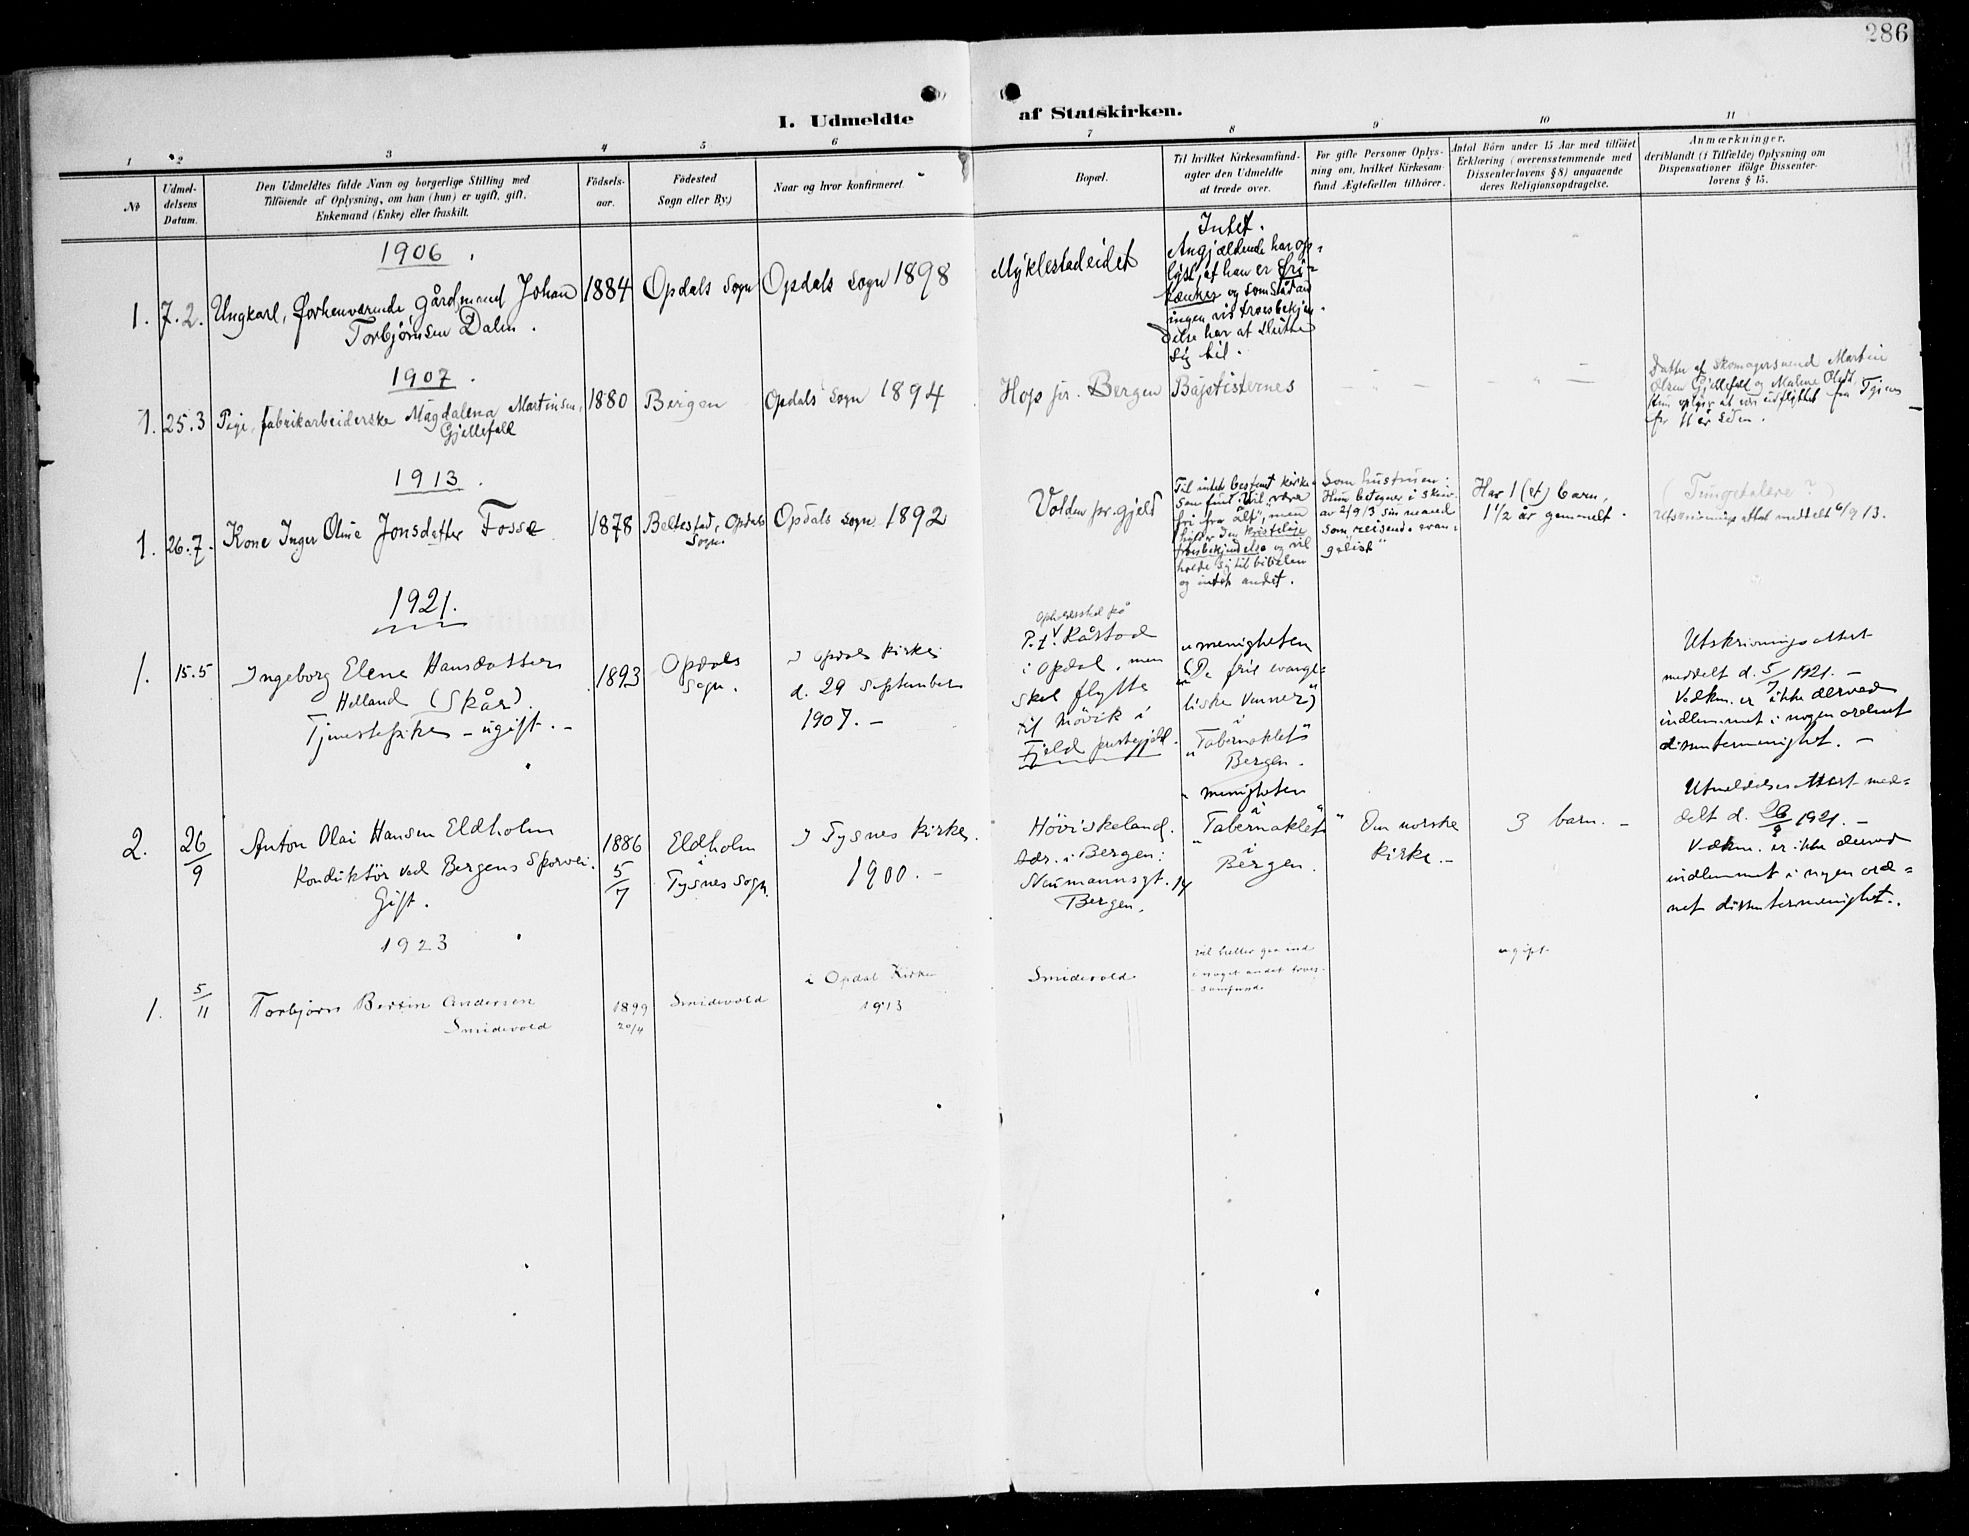 286
I. Udmeldte af Statskirken.
1 2 3 4 5 6 7 8 9 10 11
No
Udmel-
delsens
Datum.
Den Udmeldtes fulde Navn og borgerlige Stilling med
Tilföiende af Oplysning, om han (hun) er ugift, gift,
Enkemand (Enke) eller fraskilt.
Födsels-
aar.
Födested
Sogn eller By.)
Naar og hvor konfirmeret.
Bopæl.
Til hvilket Kirkesamfund-
agter den Udmeldte
at træde over.
For gifte Personer Oplys-
ning om, hvilket Kirkesam-
fund Ægtefællen tilhörer.
Antal Börn under 15 Aar med tilföiet
Erklæring (overensstemmende med
Dissenterlovens § 8) angaaende
deres Religionsopdragelse.
Anmærkninger,
deriblandt (i Tilfælde) Oplysning om
Dispensationer ifölge Dissenter-
lovens § 15.
1906.
1. 7.2. Ungkarl, forhenværende gårdmand Johan
Torbjørnsen Dalen.
1884
Opdals sogn
Opdals sogn 1898
Myklestadeidet
Intet.
Angjældende har op-
lyst, at han er fri-
tænker og som sådan
ingen vis troesbekjen-
delse har at slutte
sig til.
1907.
1. 25.3 Pige, fabrikarbeiderske Magdalena Martinsen
Gjellefald
1880
Bergen
Opdals sogn 1894
Hop pr. Bergen
Baptisternes
Datter af skomagersvend Martin
Olsen Gjellefald og Malene Olsdt.
Hun opgiver at være udflyttet fra Tysnes
for 11 år siden.
1913.
1. 26.7. Kone Inger Oline Jonsdatter Fosse
1878
Beltestad, Opdals
Sogn.
Opdals sogn 1892
Volden pr.gjeld
Til intet bestemt kirke-
samfund. Vil være
fri fra "alt", men
holder den kristelige
troesbekjendelse og vil
holde sig til bibelen
og intet andet.
Som hustruen:
Hun betegner i skriv.
av 2/9/13 sin mand
som "reisende evan-
gelist"
Har 1 (et) barn,
1 1/2 år gammelt.
(Tungetalere?)
Utskrivningsattest meddelt 6/9 13.
1921.
1. 15.5 Ingeborg Elene Hansdatter
Helland (Skår).
Tjenestepike - ugift. -
1893
Opdals
Sogn.
I Opdals kirke
d. 29 september
1907. -
opholdssted på
P.t. Råstad
i Opdal, men
skal flytte
til Növik i
Fjeld prestegjeld.
"menigheten
("De frie evange-
liske venner")
i
"Tabernaklet"
Bergen.
Utskrivningsattest
meddelt d. 5/7 1921. -
Vedkm. er ikke derved
indlemmet i nogen ordnet
dissentermenighet. -
2. 26/9 Anton Olai Hansen Eldholm
Konduktör ved Bergens Sporvei.
Gift.
1886
5/7
Eldholm
i
Tysnes sogn.
I Tysnes kirke.
1900. -
Höviskeland.
Adr. i Bergen:
Neumannsgt. 14
Bergen.
"menigheten
i
"Tabernaklet"
i
Bergen.
Den norske
kirke. -
3 barn. -
Utmeldelsesattest med-
delt d. 26/9 1921. -
Vedkm. er ikke derved
indlemmet i nogen ord-
net dissentermenighet. -
1923
1. 5/11 Torbjörn Bertin Andersen
Smidevold
1899
20/4
Smidevold
i Opdal Kirke
1913
Smidevold
vil heller gaa ind
i noget andet troes-
samfund
ugift